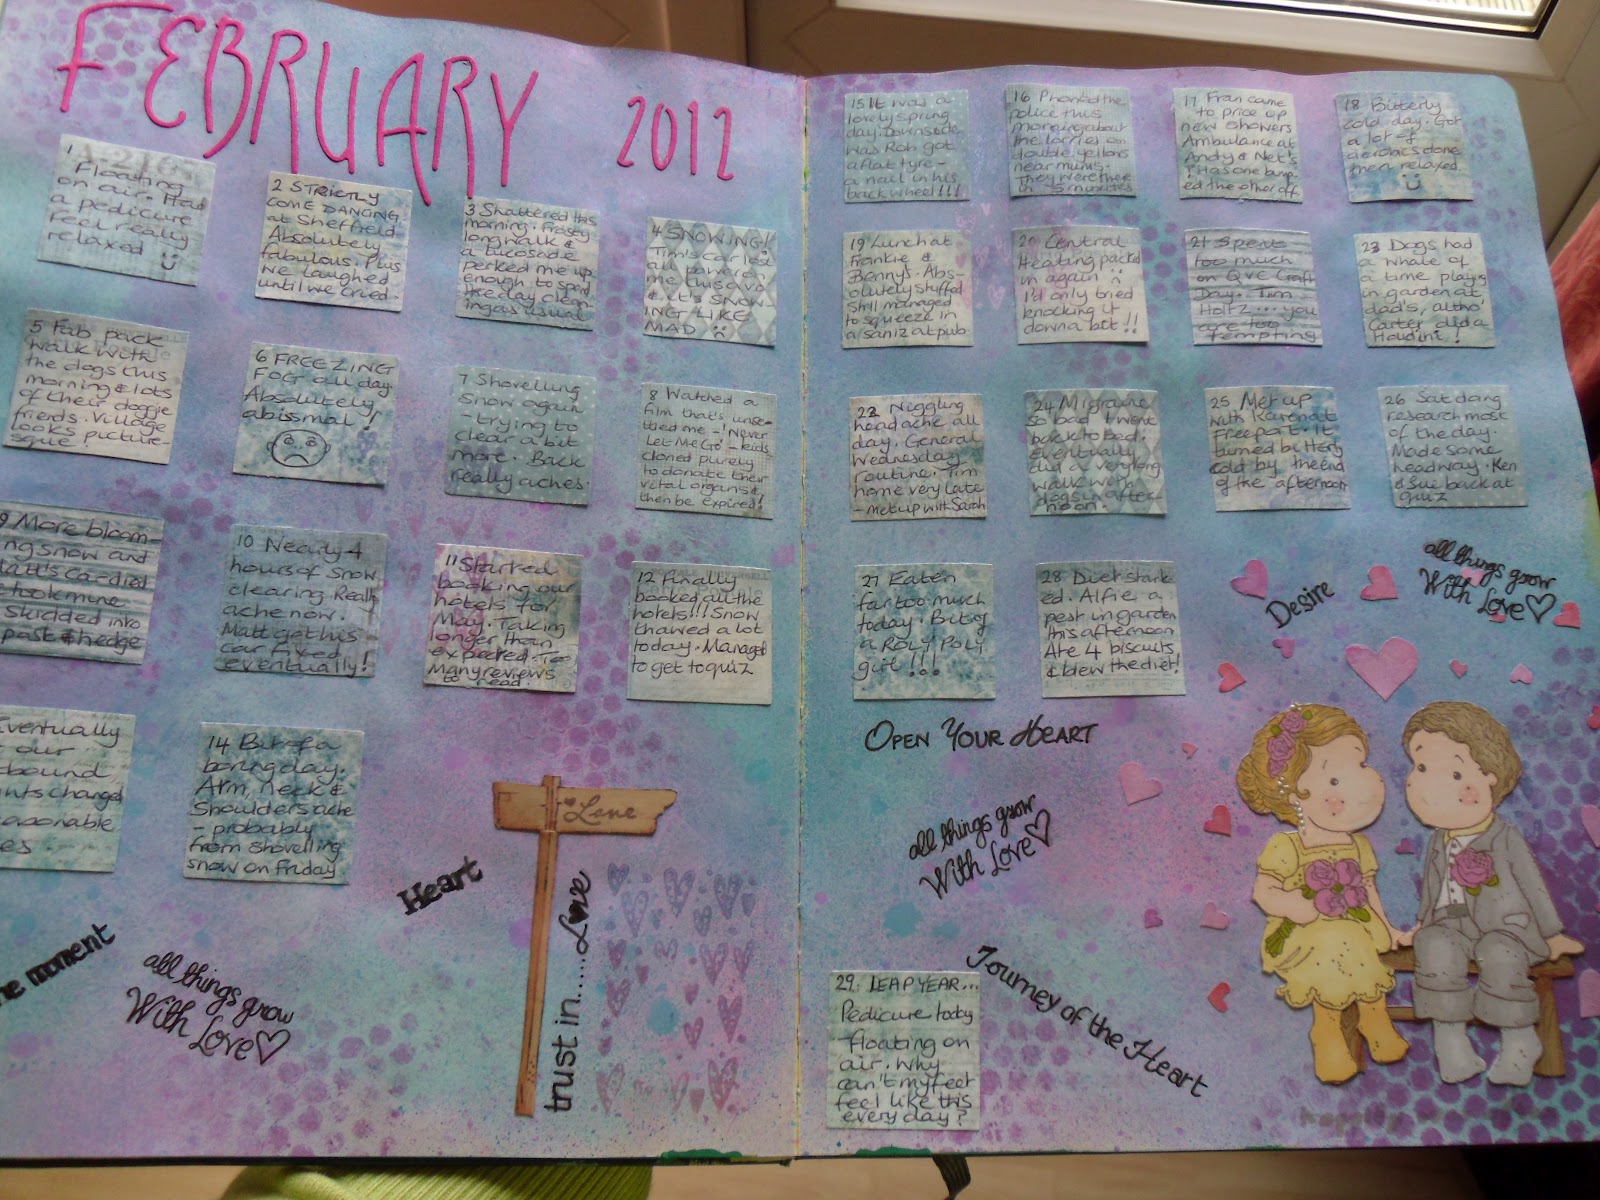 FEBRUARY 2012
1
Floating
on air. Had
a pedicure
feel really
relaxed
2 STRICTLY
COME DANCING
at Sheffield
Absolutely
fabulous. Plus
we laughed
until we cried.
3 Shattered this
morning. Frosty
long walk &
a lucosade
perked me up
enough to spend
the day clean-
ing as usual
4 SNOWING!
Tim's car lost
all power on
& it's SNOW
ING LIKE
MAD
5 Fab pack
walk with
the dogs this
morning & lots
of their doggie
friends. Village
looks picture-
sque!
6 FREEZING
FOG all day.
Absolutely
abismal!
7 Shovelling
Snow again
- trying to
clear a bit
more. Back
really aches.
8 Watched a
film that's unse-
ttled me - 'Never
Let Me Go' - kids
cloned purely
to donate their
vital organs &
then be expired!
9 More bloom-
ing snow and
Matt's car died
so took mine
& skidded into
past & hedge
10 Nearly 4
hours of snow
clearing. Really
ache now.
Matt got his
car fixed
eventually!
11 Started
booking our
hotels for
May. Taking
longer than
expected. Too
many reviews
to read.
12 Finally
booked all the
hotels!!! Snow
thawed a lot
today. Managed
to get to quiz
Eventually
our
bound
changed
es.
14 Bit of a
boring day.
Arm, neck &
Shoulders ache
- probably
from shovelling
snow on Friday
Heart
Love
trust in.....Love
he moment
all things grow
With Love
15 It was a
lovely spring
day. Downside
was Rob got
a flat tyre -
a nail in his
back wheel!!!
16 Phoned the
police this
morning about
the lorries on
double yellows
near mum's.
They were there
in 5 minutes
17 Fran came
to price up
new showers
Ambulance at
Andy & Net's
! Has one bump-
ed the other off
18 Bitterly
cold day. Got
a lot of
aerobics done
then relaxed
19 Lunch at
Frankie &
Benny's. Abs-
olutely stuffed
Still managed
to squeeze in
a saniz at pub.
20 Central
Heating packed
in again
I'd only tried
knocking it
down a bit!!
21 Spent
too much
on QVC Craft
Day. Tim
Holtz...you
are too
tempting
23 Dogs had
a whale of
a time playing
in garden at
dad's, altho'
Carter did a
Houdini!
22 Niggling
headache all
day. General
Wednesday
routine. Tim
home very late
- met up with Sarah
24 Migraine
so bad I went
back to bed.
eventually
did a very long
walk with
dogs in after-
noon.
25 Met up
with Karen at
Freeport. It
turned bitterly
cold by the end
of the afternoon
26 Sat doing
research most
of the day.
Made some
headway. Ken
& Sue back at
quiz
27 Eaten
far too much
today. Bit of
a ROLY POLY
girl!!!
28 Diet start-
ed. Alfie a
pest in garden
this afternoon
Ate 4 biscuits
& blew the diet!
Desire
all things grow
With Love
OPEN YOUR HEART
all things grow
With Love
Journey of the Heart
29. LEAP YEAR...
Pedicure today
- floating on
air. Why
can't my feet
feel like this
every day?